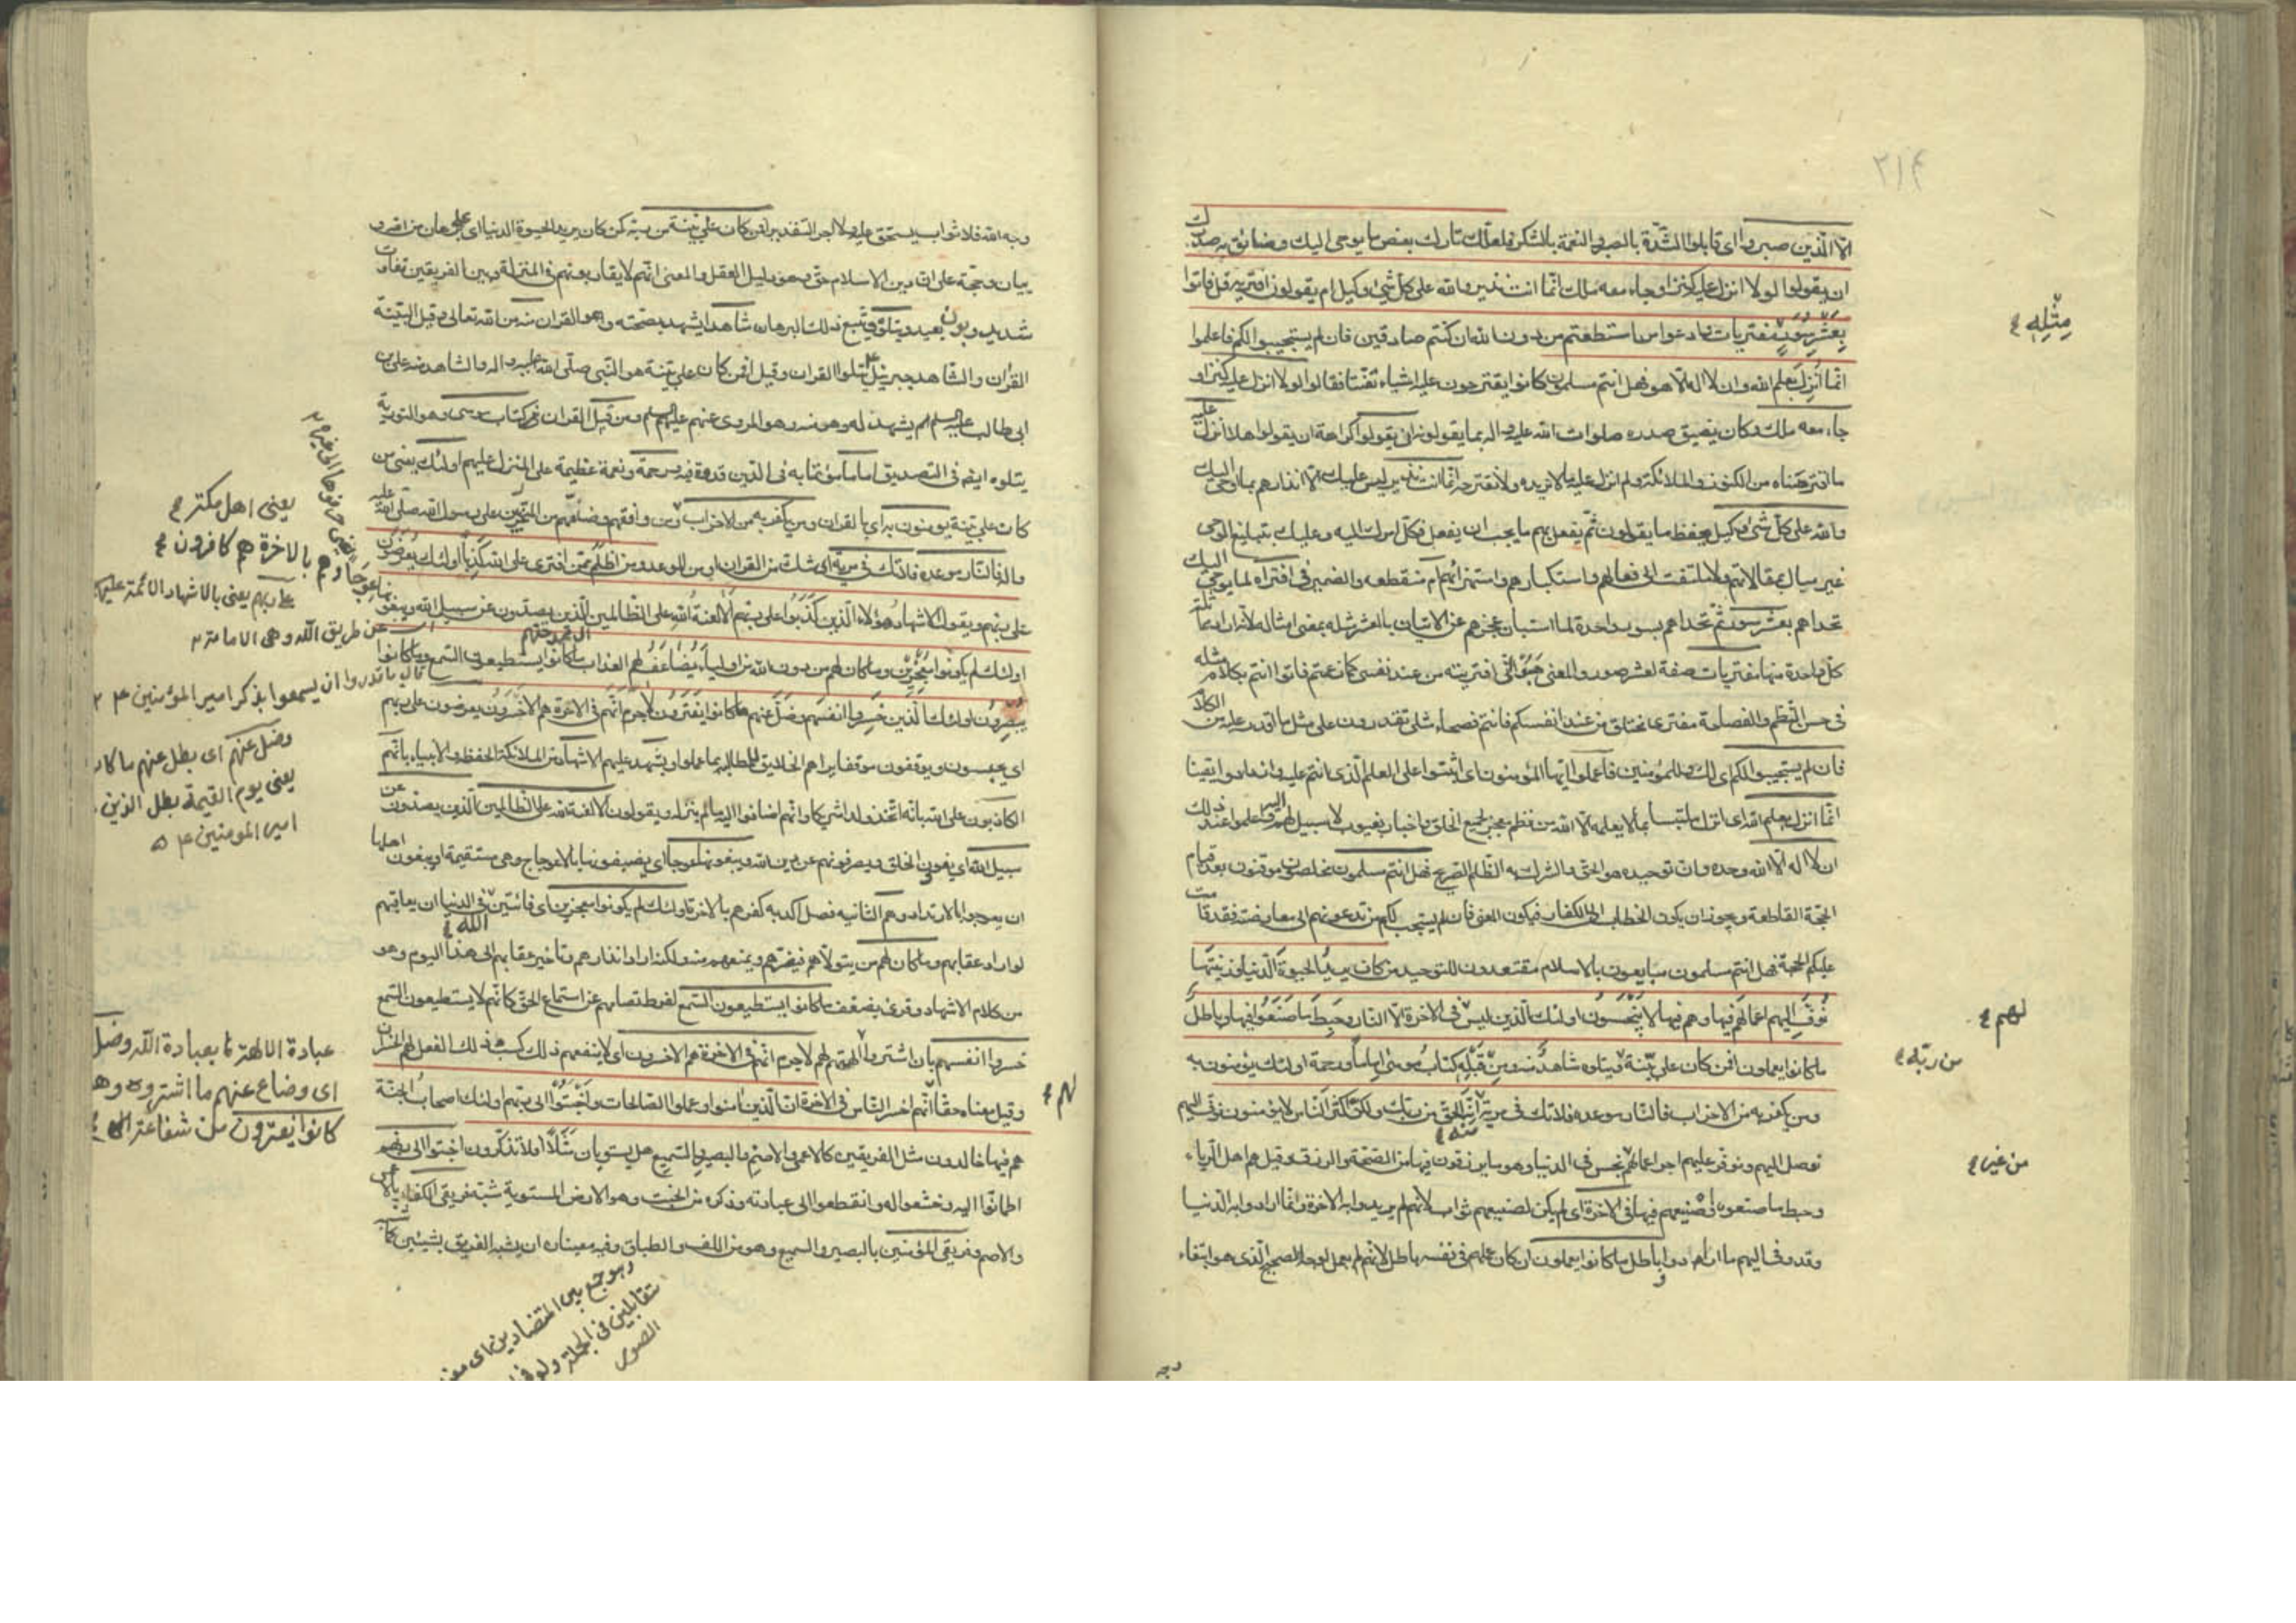 ٢١٤
الّا الّذين صبروا اى قابلوا الشدّة بالصبر والنعمة بالشكر فلعلّك تارك بعض ما يوحى اليك وضائق به صدرك
ان يقولوا لولا انزل عليه كنز او جاء معه ملك انّما انت نذير والله على كلّ شئ وكيل ام يقولون افتريه قل فاتوا
بِعَشْرِ سُوَرٍ مفتريات وادعوا من استطعتم من دون الله ان كنتم صادقين فان لم يستجيبوا لكم فاعلموا
مِثْلِهِ
انّما اُنزِلَ بعلم الله وان لا اله الّا هو فهل انتم مسلمون كانوا يقترحون عليه اشياء تعنّتا فقالوا لولا انزل عليه كنز او
جاء معه ملك وكان يضيق صدره صلوات الله عليه واله بما يقولونه ان يقولوا كراهة ان يقولوا هلا انزل عليه
ما اقترحناه من الكنوز والملائكة ولم انزل عليه ما لا نريده ولا نقترحه انّما انت نذير ليس عليك الّا انذارهم بما اوحى اليك
والله على كلّ شئ وكيل يحفظ ما يقولون ثمّ يفعل بهم ما يجب ان يفعل فكل امرك اليه وعليك بتبليغ الوحى
غير مبال بمقالاتهم ولا ملتفت الى فعالهم واستكبارهم واستهزائهم ام منقطعه والضمير فى افتراه لما يوحى اليك
تحداهم بعشر سور ثمّ تحداهم بسورة واحدة لما استبان عجزهم عن الاتيان بالعشر مثله بمعنى امثاله لانّه اراد مماثلة
كلّ واحدة منها مفتريات صفة لعشر سور والمعنى هَبُوا انّى افتريته من عند نفسى كما زعمتم فاتوا انتم بكلام مثله
فى حسن النظم والفصاحة مفترى مختلق من عند انفسكم فانتم فصحاء مثلى تقدرون على مثل ما اقدر عليه من الكلام
فان لم يستجيبوا لكم اى لك وللمؤمنين فاعلموا ايّها المؤمنون اى اثبتوا على العلم الّذى انتم عليه وازدادوا يقينا
انّما انزل بعلم الله اى انزل ملتبسا بما لا يعلمه الّا الله من نظم معجز لجميع الخلق واخبار بغيوب لا سبيل لهم اليه واعلموا عند ذلك
ان لا اله الّا الله وحده وان توحيده هو الحق والشرك به الظلم الصريح فهل انتم مسلمون مخلصون موقنون بعد قيام
الحجّة القاطعة ويجوز ان يكون الخطاب للكفار فيكون المعنى فان لم يستجب لكم من تدعونهم الى معارضته فقد قامت
عليكم الحجة فهل انتم مسلمون مبايعون بالاسلام معتقدون للتوحيد من كان يريد الحيوة الدنيا وزينتها
نُوَفِّ اليهم اعمالهم فيها وهم فيها لا يُبْخَسُونَ اولئك الّذين ليس فى الاخرة الّا النار وَحَبِطَ ما صَنَعُوا فيها وباطل
لهم
ما كانوا يعملون افمن كان على بيّنة ويتلوه شاهدٌ منه ومِن قَبْلِهِ كتابُ موسى إماماً ورحمة اولئك يؤمنون به
من ربّه
ومن يكفر به من الاحزاب فالنار موعده فلا تك فى مرية انّه الحق من ربّك ولكنّ اكثر النّاس لا يؤمنون نوفّ اليهم
منه
نوصل اليهم ونوفر عليهم اجر اعمالهم بخس فى الدنيا وهو ما يرزقون فيها من الصّحّة والرزق وقيل هم اهل الرياء
من غير
وحبط ما صنعوا صنيعهم فيها فى الاخرة اى لم يكن لصنيعهم ثواب لانّهم لم يريدوا به الاخرة وانّما ارادوا به الدّنيا
وقد وفى اليهم ما ارادوا وباطل ما كانوا يعملون ان كان عملهم فى نفسه باطل لانّهم لم يعمل لوجه الصحيح الّذى هو ابتغاء
وجه
وجه الله فلا ثواب يستحق عليه ولا اجر التقدير افمن كان على بيّنة من ربّه كمن كان يريد الحيوة الدنيا اى على برهان من الله و
بيان وحجّة على انّ دين الاسلام حق وهو دليل العقل والمعنى انّهم لا يقاربونهم فى المنزلة وبين الفريقين تفاوت
شديد وبون بعيد ويتلوه ويتبع ذلك البرهان شاهد يشهد بصحّته وهو القران منه من الله تعالى وقيل البيّنة
القران والشاهد جبرئيل يتلوا القران وقيل افمن كان على بيّنة هو النبى صلّى الله عليه واله والشاهد منه على بن
ابى طالب عليه السلم يشهد له وهو منه وهو المروى عنهم عليهم السلم ومن قبل القران كتاب موسى وهو التورية
يتلوه ايضا فى التصديق اماما مؤتمّا به فى الدّين قدوة فيه ورحمة ونعمة عظيمة على المنزل عليهم اولئك يعنى من
كان على بيّنة يؤمنون به اى بالقران ومن يكفر به من الاحزاب ومن وافقهم وضامّهم من المتحزّبين على رسول الله صلّى الله عليه
واله فالنّار موعده فلا تك فى مرية اى شك من القران او من الموعد ومن اظلم ممّن افترى على الله كَذِباً اولئك يُعرضون
على ربّهم ويقول الاشهاد هؤلاء الّذين كَذَبُوا على ربّهم اَلا لعنةُ الله على الظالمين الّذين يصدّون عن سبيل الله ويبغو
اولئك لم يكونوا مُعْجِزِينَ وما كان لهم من دون الله من اولياء يُضَاعَفُ لهم العذاب ما كانوا يستطيعون السّمع وما كانوا
يُبْصِرُون اولئك الّذين خَسِروا انفسَهم وضلّ عنهم ما كانوا يفترون لا جرم انّهم فى الاخرة هم الاخسرون يعرضون على ربهم
اى يحبسون ويوقفون موقفا يراهم الخلايق للمطالبة بما عملوا ويشهد عليهم الاشهاد من الملائكة الحفظة والانبياء بانّهم
الكاذبون على الله بانّه اتّخذ ولدا وشريكا وانّهم اضافوا اليه ما لم ينزله ويقولون الا لعنة الله على الظالمين الّذين يصدّون عن
سبيل الله اى يغوون الخلق ويصرفونهم عن دين الله ويبغونها عوجا اى يصفونها بالاعوجاج وهى مستقيمة او يبغون اهلها
ان يعوجوا بالارتداد وهم الثانيه فصل اكد به كفرهم بالاخرة اولئك لم يكونوا معجزين اى فائتين فى الدنيا ان يعاقبهم
الله
لو اراد عقابهم وما كان لهم من يتولّاهم فينصرهم ويمنعهم منه ولكنه اراد انذارهم وتاخير عقابهم الى هذا اليوم وهو
من كلام الاشهاد وقرئ يضعّف ما كانوا يستطيعون السّمع لفرط تصامهم عن استماع الحقّ كانّهم لا يستطيعون السّمع
خسروا انفسهم بان اشتروا لهم لا جرم انّهم فى الاخرة هم الاخسرون اى لا ينفعهم ذلك كسب ذلك الفعل لهم الخسران
وقيل معناه حقّا انّهم اخسر النّاس فى الاخرة انّ الّذين امنوا وعملوا الصّالحات واَخْبَتُوا الى ربّهم اولئك اصحابُ الجنّة
لهم
هم فيها خالدون مثل الفريقين كالاعمى والاصمّ والبصير والسّميع هل يستويان مَثَلًا افلا تذكّرون اخبتوا الى ربهم
اطمانّوا اليه وخشعوا له وانقطعوا الى عبادته وذكره من الخبت وهو الارض المستوية شبّه فريق الكفار بالاعمى
والاصم وفريق المؤمنين بالبصير والسميع وهو من اللف والطباق وفيه معنيان ان يشبه الفريق بشيئين كما
يعنى اهل مكة
وهم بالاخرة هم كافرون
على ربهم يعنى بالاشهاد الائمة عليهم
عن طريق الله وهى الامامة
ما قدروا ان يسمعوا بذكر امير المؤمنين
وضل عنهم اى بطل عنهم ما كان
يعنى يوم القيمة بطل الذين
امير المومنين
عبادة الالهة بعبادة الله وضل
اى وضاع عنهم ما اشتروه وهو
كانوا يفترون من شفاعة
وهو جمع بين المتضادين اى
متقابلين فى الجملة ولو فى
الصور